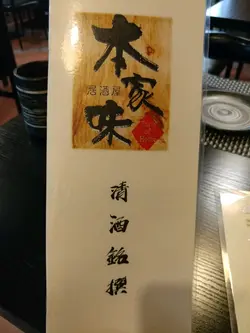 本家味
居酒屋
清酒銘撰